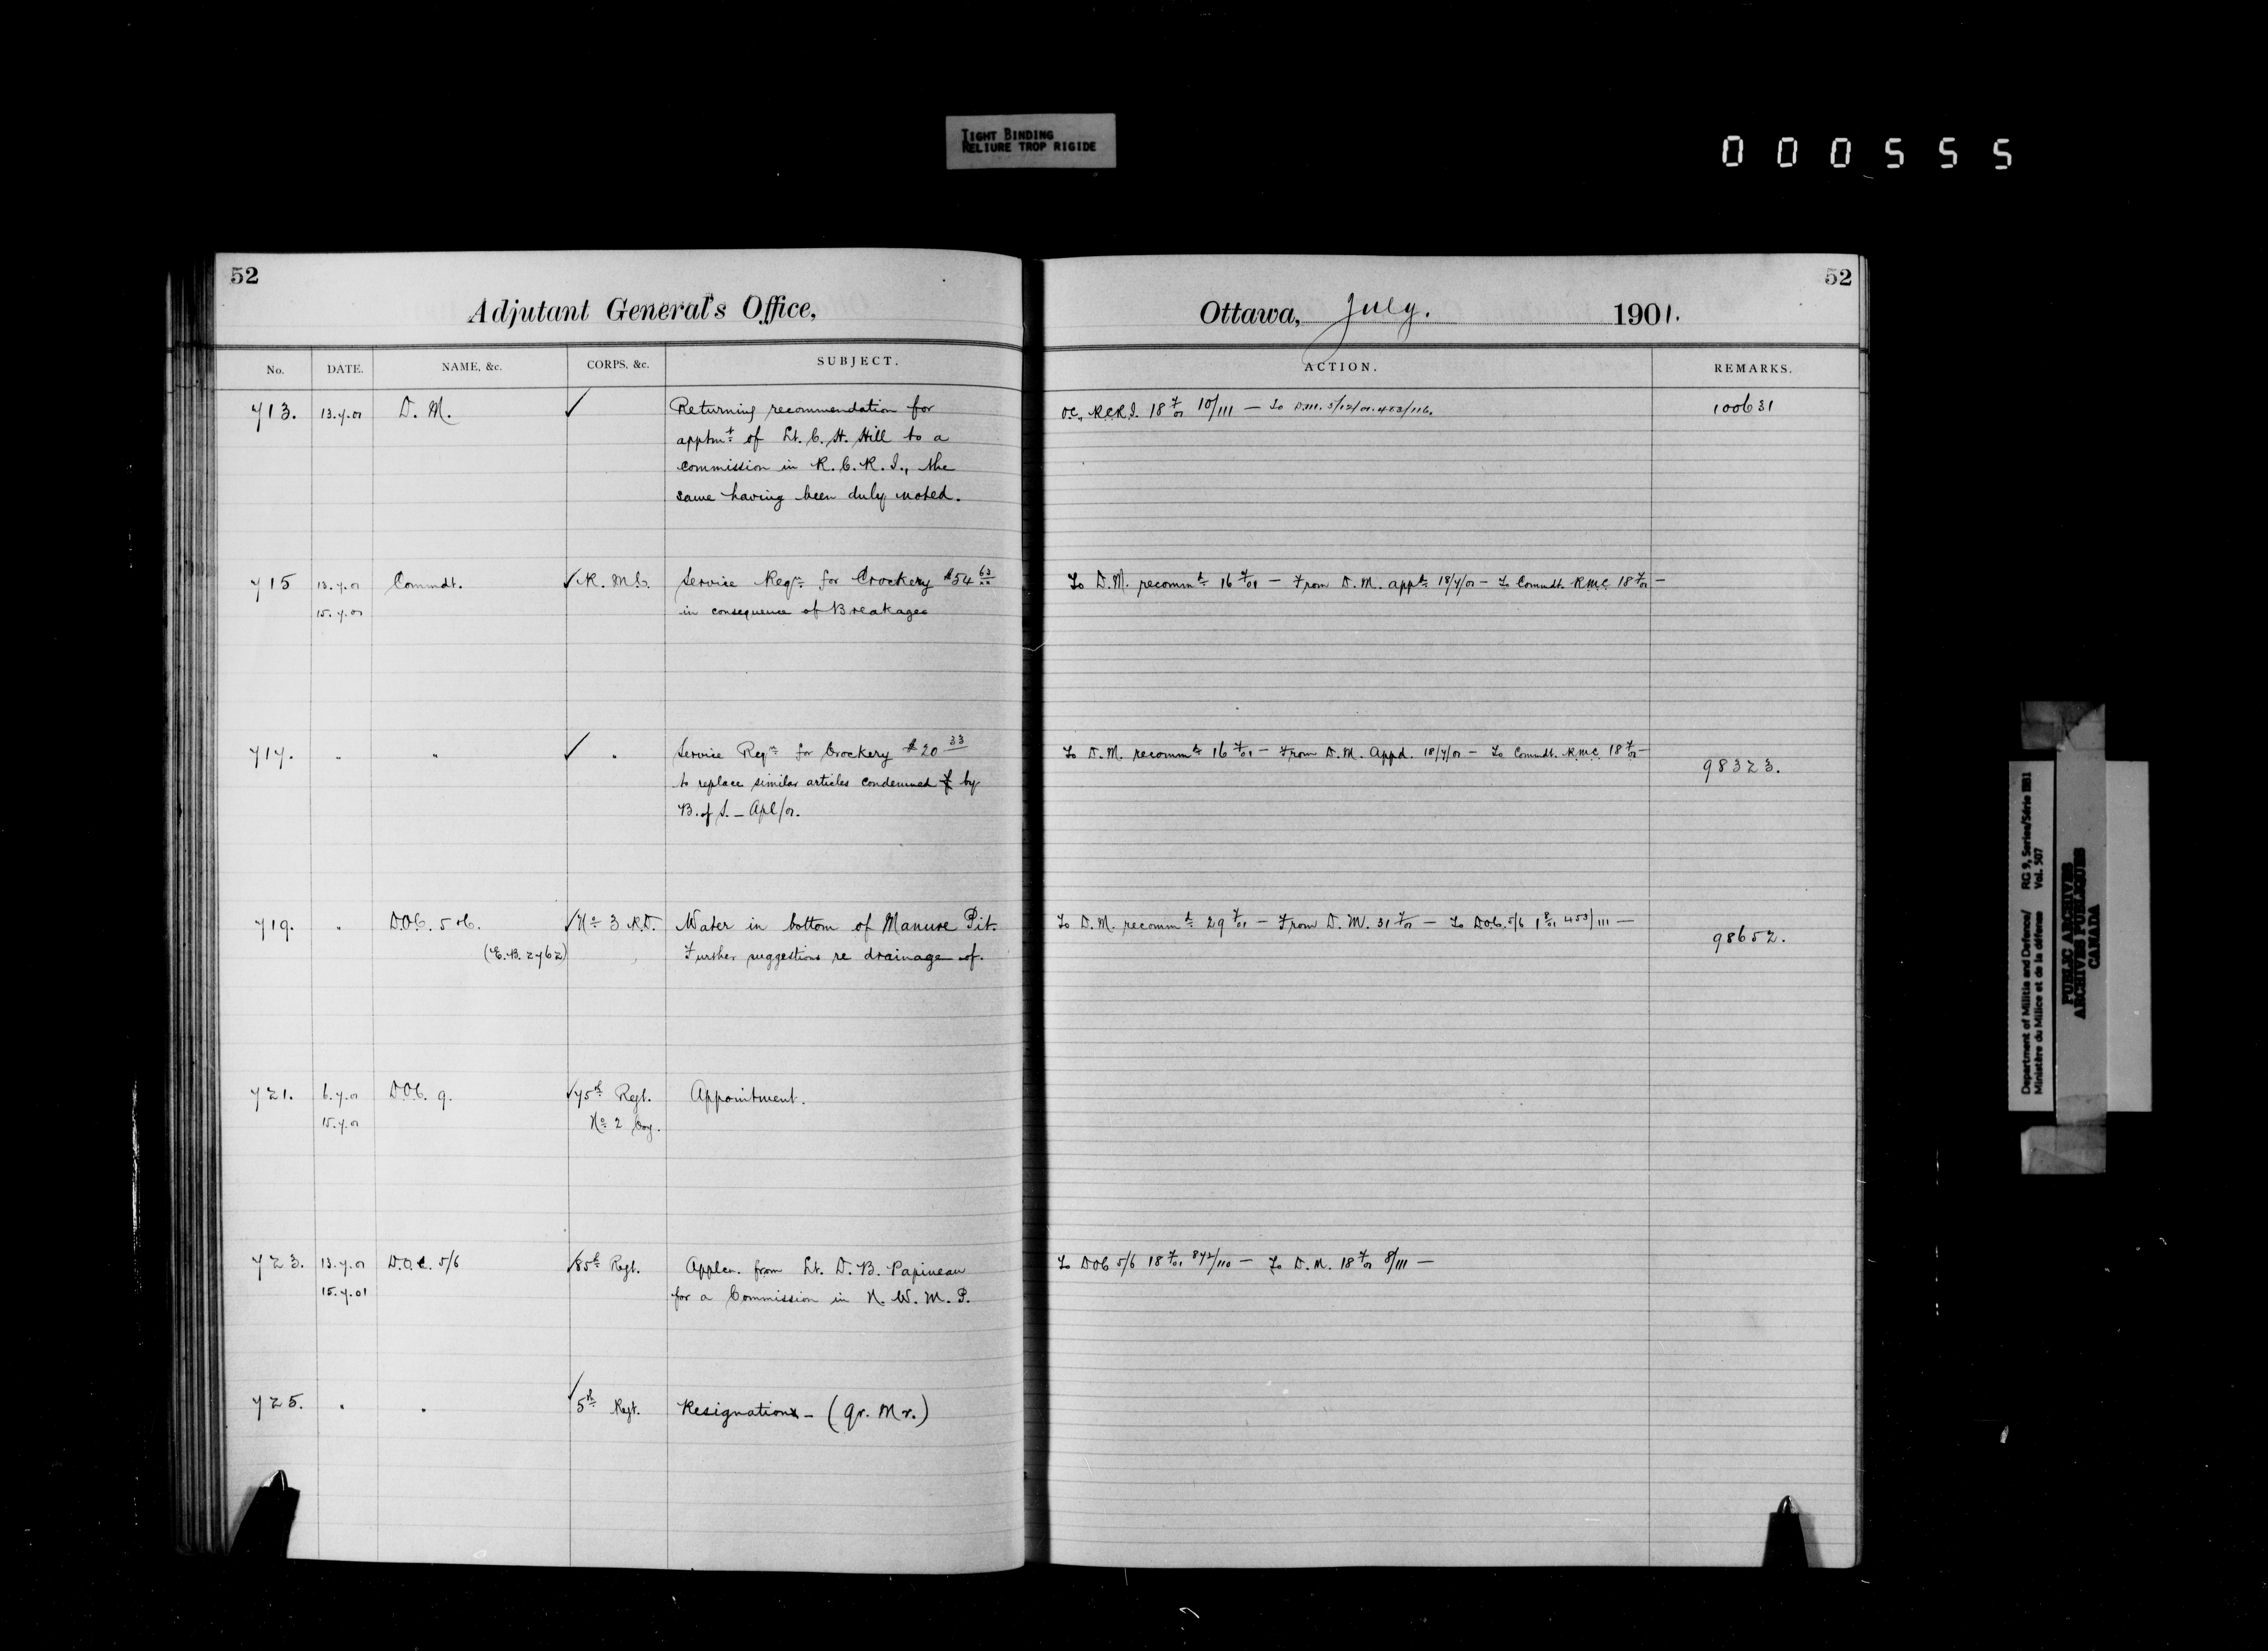 TIGHT BINDING
RELIURE TROP RIGIDE
000555
52
Adjutant General's Office,
No. DATE. NAME, &c. CORPS, &c. SUBJECT.
713. 13.7.01 D. M. ✓ Returning recommendation for
apptmt of Lt. C. H. Hill to a
commission in R. C. R. I., the
same having been duly noted.
715 13.7.01 Commdt. ✓ R. M. C. Service Reqn for Crockery $54 63/xx
15.7.01 in consequence of Breakages
717. " " ✓ " Service Reqn for Crockery $20 33
to replace similar articles condemned by
B. of S. - Apl/01.
719. " D.O.C. 5 & 6. ✓ No 3 R.D. Water in bottom of Manure Pit.
(E.B. 2762) Further suggestions re drainage of.
721. 6.7.01 D.O.C. 9. ✓ 75th Regt. Appointment.
15.7.01 No 2 Coy.
723. 13.7.01 D.O.C. 5/6 ✓ 85th Regt. Applcn. from Lt. D. B. Papineau
15.7.01 for a Commission in N. W. M. P.
725. " " ✓ 5th Regt. Resignation - (Qr. Mr.)
52
Ottawa, July. 1901.
ACTION. REMARKS.
O.C., R.C.R.I. 18 7/01 10/111 — To D.M. 5/12/01. 453/116. 100631
To D.M. recommd 16 7/01 — From D. M. appd 18/7/01 — To Commdt. R.M.C. 18 7/01 —
To D. M. recommd 16 7/01 — From D. M. Appd. 18/7/01 — To Commdt. R.M.C. 18 7/01 —
98323.
To D. M. recommd 29 7/01 — From D. M. 31 7/01 — To D.O.C. 5/6 1 8/01 453/111 —
98652.
To DOC 5/6 18 7/01 872/110 — To D. M. 18 7/01 8/111 —
Department of Militia and Defence/ RG 9, Series/Série IIB1
Ministère du Milice et de la défence Vol. 507
PUBLIC ARCHIVES
ARCHIVES PUBLIQUES
CANADA